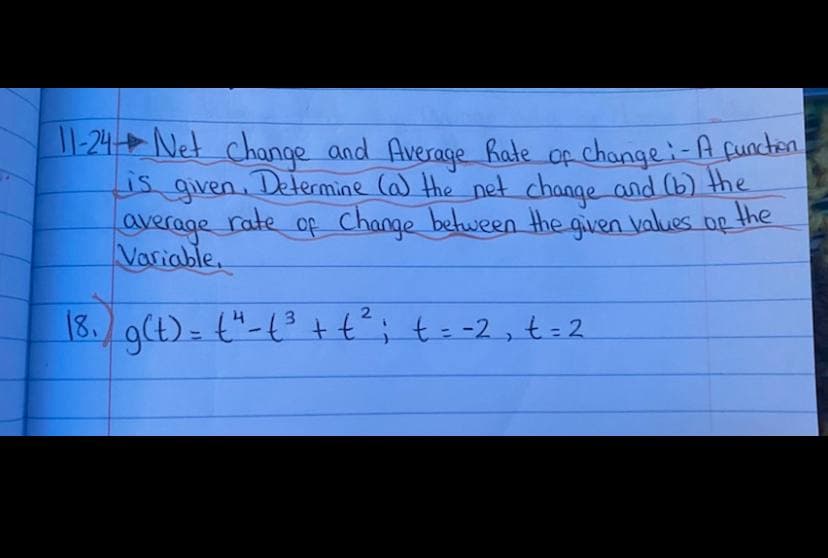 11-24→ Net Change and Average Rate of change:- A function
is given. Determine (a) the net change and (b) the
average rate of Change between the given values of the
Variable.
18.) g(t) = t⁴-t³ + t²; t = -2, t = 2